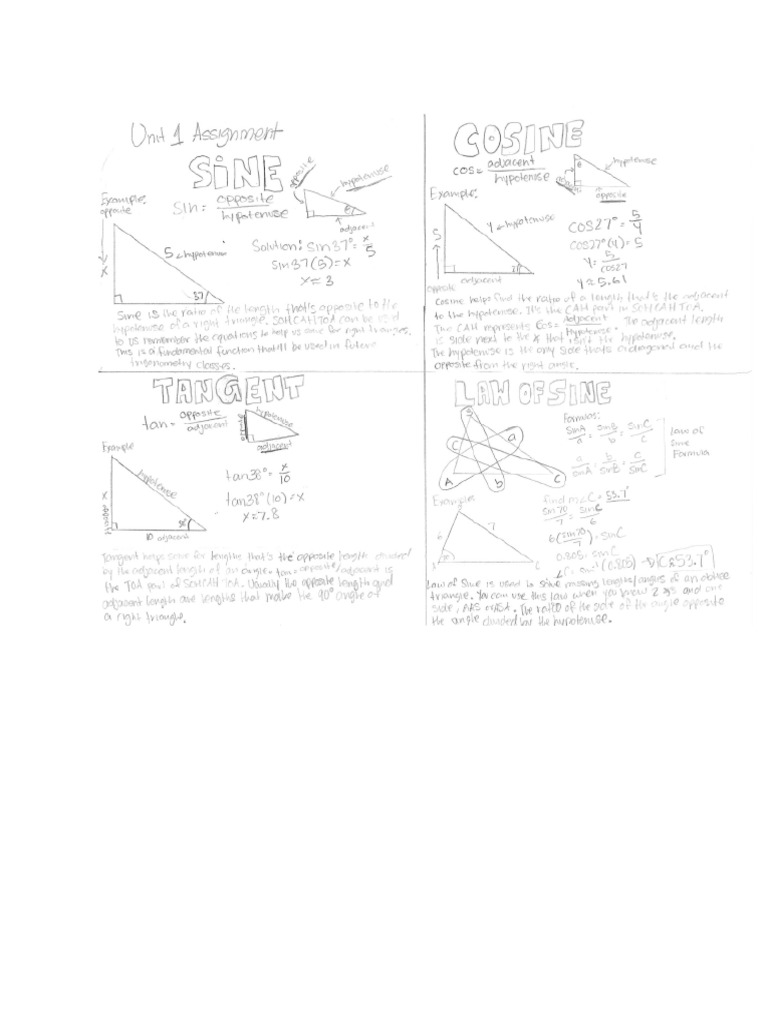 Unit 1 Assignment
SiNE
Example:
opposite
sin = opposite / hypotenuse
opposite
hypotenuse
adjacent
x
5 hypotenuse
37°
Solution: sin37° = x/5
sin37(5)=x
x≈3
Sine is the ratio of the length that's opposite to the
hypotenuse of a right triangle. SOHCAHTOA can be used
to us remember the equations to help us solve for right triangles.
This is a fundamental function that'll be used in future
trigonometry classes.
COSINE
cos= adjacent / hypotenuse
θ
hypotenuse
opposite
Example:
5
y hypotenuse
adjacent
opposite
cos27° = 5/y
cos27°(y) = 5
y = 5/cos27
y≈5.61
Cosine helps find the ratio of a length that's the adjacent
to the hypotenuse. It's the CAH part in SOHCAHTOA.
The CAH represents cos= adjacent / hypotenuse. The adjacent length
is side next to the ∡ that isn't the hypotenuse.
The hypotenuse is the only side thats a diagonal and the
opposite from the right angle.
TANGENT
tan= opposite / adjacent
opposite
hypotenuse
adjacent
Example
hypotenuse
opposite x
38°
10 adjacent
tan38° = x/10
tan38°(10)=x
x≈7.8
Tangent helps solve for lengths that's the opposite length divided
by the adjacent length of an angle. tan= opposite/adjacent is
the TOA part of SOHCAHTOA. Usually the opposite length and
adjacent length are lengths that make the 90° angle of
a right triangle.
LAW OF SINE
a
C
A
b
C
Formulas:
sinA/a = sinB/b = sinC/c
a/sinA = b/sinB = c/sinC
Law of
Sine
Formula
Example:
6
7
find m∠C = 53.7°
sin70/7 = sinC/6
6(sin70/7) = sinC
0.805 = sinC
∠C = sin⁻¹(0.805) → C≈53.7°
Law of Sine is used to solve missing lengths/angles of an oblique
triangle. You can use this law when you know 2 ∡s and one
side, AAS or ASA. The ratio of the side of the angle opposite to
the angle divided by the hypotenuse.